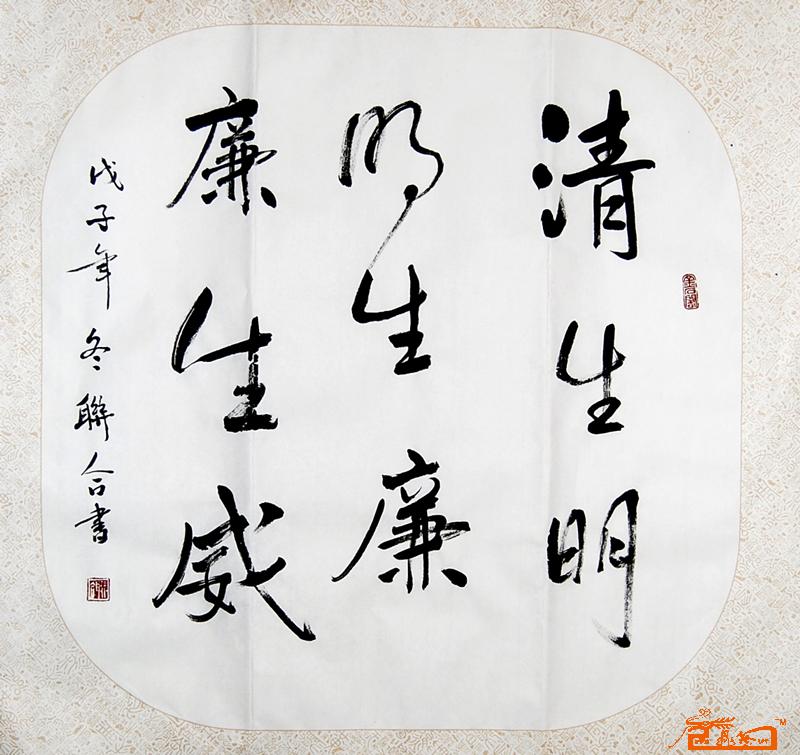 清生明
明生廉
廉生威
戊子年冬聯合書